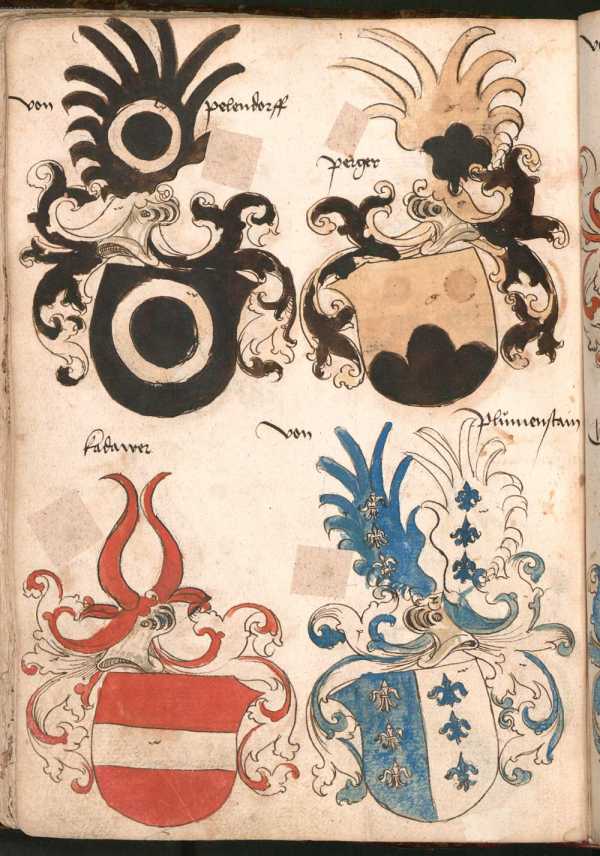 von pelendorff
perger
kadawer
von plůmenstain